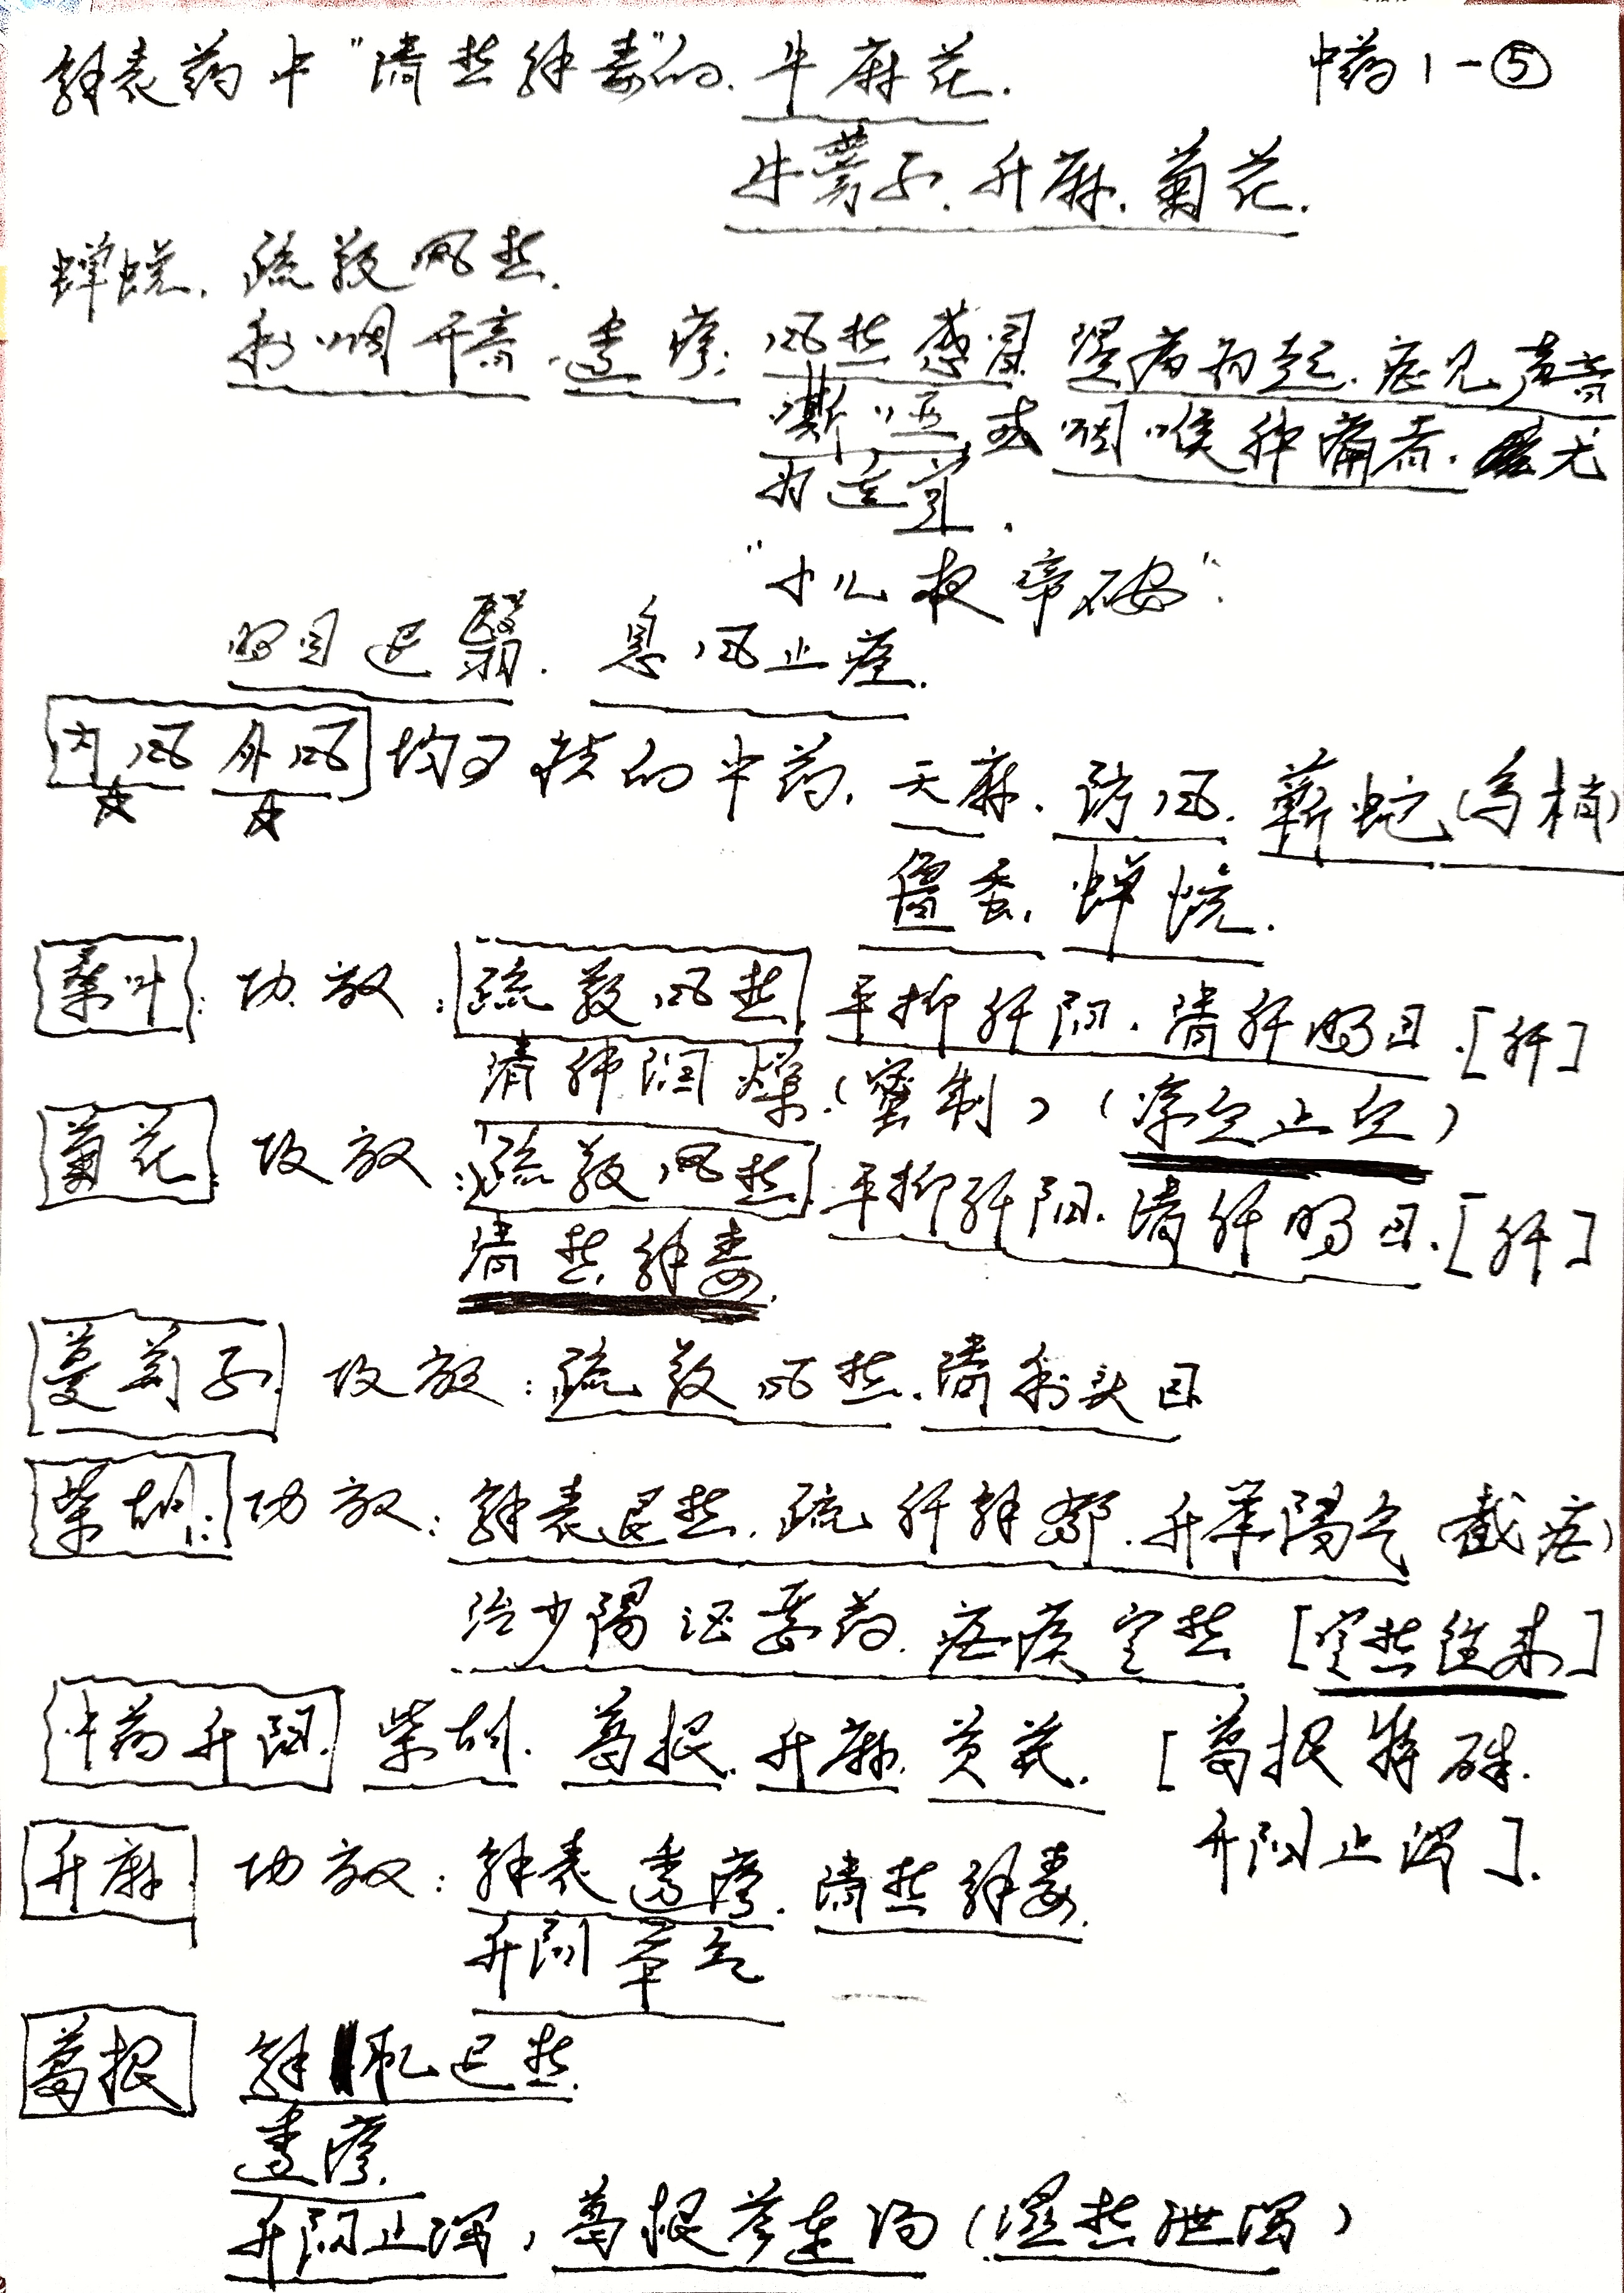 解表药中"清热解毒"的. 牛麻花. 中药1-⑤
牛蒡子. 升麻. 菊花.
蝉蜕. 疏散风热.
利咽开音. 透疹. 风热感冒 温病初起. 症见声音
嘶哑 或 咽喉肿痛者. 尤
为适宜.
"小儿夜啼不安".
明目退翳. 息风止痉.
内风 外风 均可祛的中药. 天麻. 防风. 蕲蛇(乌梢)
僵蚕. 蝉蜕.
桑叶: 功效: 疏散风热 平抑肝阳. 清肝明目.[肝]
清肺润燥.(蜜制) (凉血止血)
菊花 功效: 疏散风热 平抑肝阳. 清肝明目.[肝]
清热解毒.
蔓荆子. 功效: 疏散风热. 清利头目
柴胡: 功效: 解表退热. 疏肝解郁. 升举阳气 (截疟)
治少阳证要药. 疟疾寒热 [寒热往来]
中药升阳. 柴胡. 葛根. 升麻. 黄芪. [葛根特殊.
升阳止泻].
升麻. 功效: 解表透疹. 清热解毒.
升阳举气
葛根 解肌退热.
透疹.
升阳止泻, 葛根芩连汤(湿热泄泻)